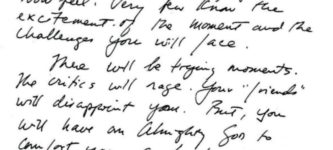 feel. Very few know the
excitement of the moment and the
challenges you will face.
There will be trying moments.
The critics will rage. Your "friends"
will disappoint you. But, you
will have an Almighty God to
comfort you